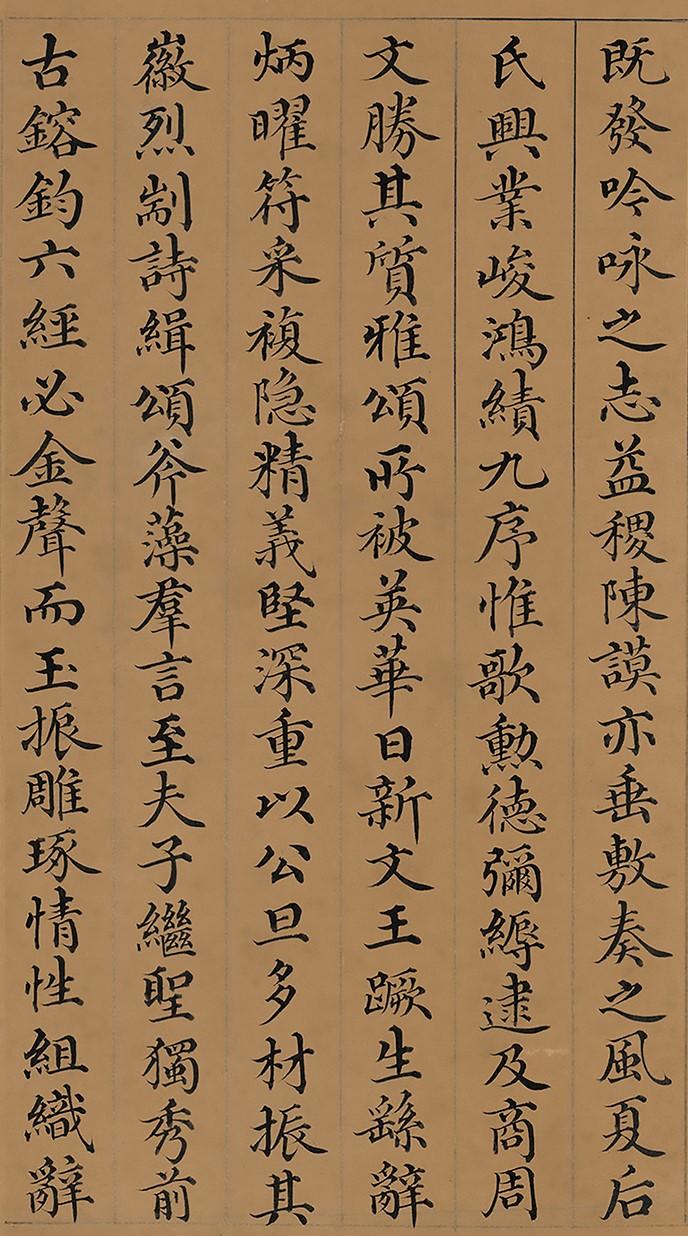 既發吟咏之志益稷陳謨亦垂敷奏之風夏后
氏興業峻鴻績九序惟歌勲德彌縟逮及商周
文勝其質雅頌所被英華日新文王蹶生繇辭
炳曜符采複隐精義堅深重以公旦多材振其
徽烈剬詩緝頌斧藻羣言至夫子繼聖獨秀前
古鎔鈞六經必金聲而玉振雕琢情性組織辭